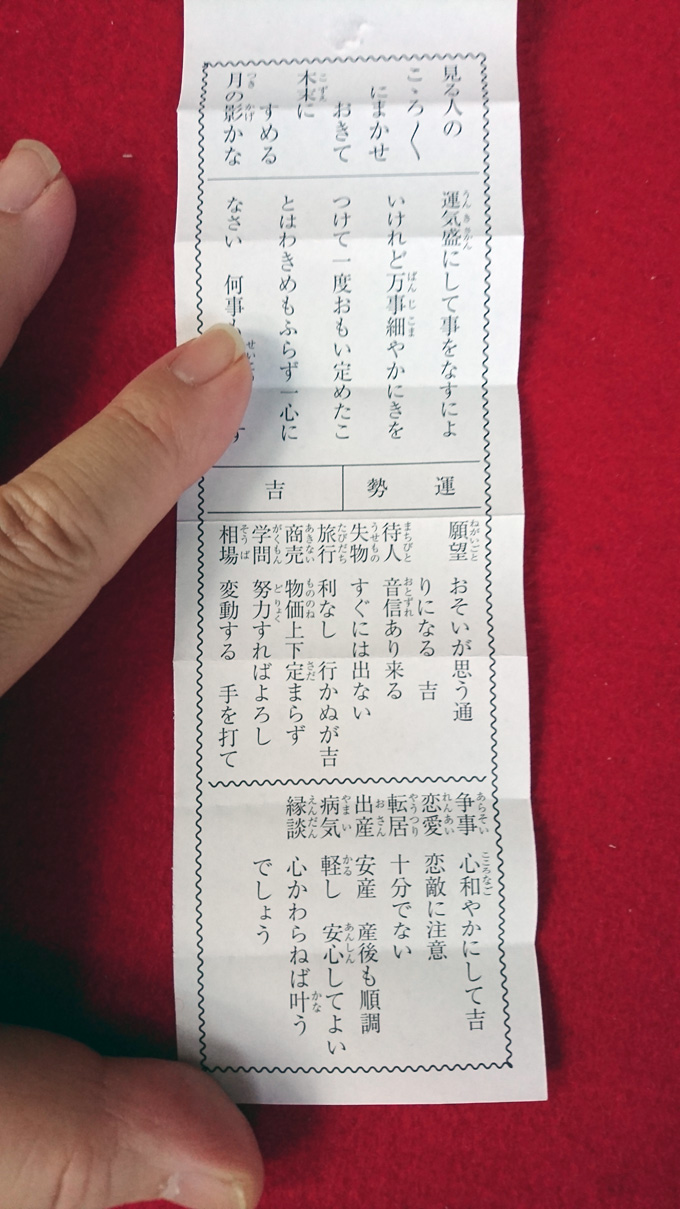 見る人の
こゝろ〱
にまかせ
おきて
木末に
すめる
月の影かな
運気盛にして事をなすによ
いけれど万事細やかにきを
つけて一度おもい定めたこ
とはわきめもふらず一心に
なさい 何事も
運勢
吉
願望 おそいが思う通
りになる 吉
待人 音信あり来る
失物 すぐには出ない
旅行 利なし 行かぬが吉
商売 物価上下定まらず
学問 努力すればよろし
相場 変動する 手を打て
争事 心和やかにして吉
恋愛 恋敵に注意
転居 十分でない
出産 安産 産後も順調
病気 軽し 安心してよい
縁談 心かわらねば叶う
でしょう